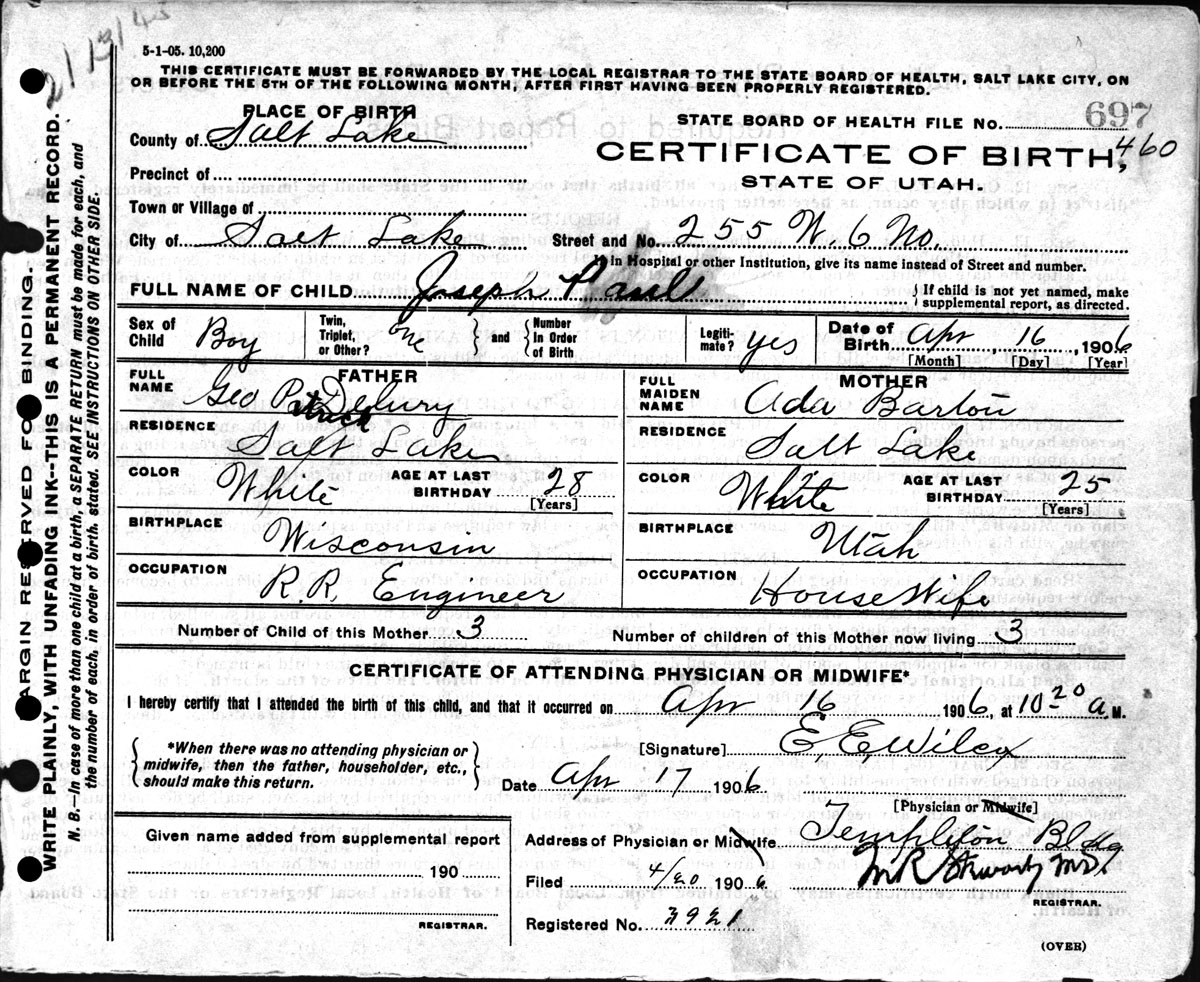 2/13/45
5-1-05. 10,200
THIS CERTIFICATE MUST BE FORWARDED BY THE LOCAL REGISTRAR TO THE STATE BOARD OF HEALTH, SALT LAKE CITY, ON
OR BEFORE THE 5TH OF THE FOLLOWING MONTH, AFTER FIRST HAVING BEEN PROPERLY REGISTERED.
PLACE OF BIRTH
County of Salt Lake
Precinct of
Town or Village of
City of Salt Lake
STATE BOARD OF HEALTH FILE No. 697
460
CERTIFICATE OF BIRTH,
STATE OF UTAH.
Street and No. 255 W. 6 No.
If in Hospital or other Institution, give its name instead of Street and number.
FULL NAME OF CHILD Joseph Paul
{ If child is not yet named, make
supplemental report, as directed.
Sex of Child Boy
Twin, Triplet, or Other? One } and { Number In Order of Birth
Legiti- mate? yes
Date of Birth Apr 16, 1906
[Month] [Day] [Year]
FATHER
FULL NAME Geo Patrick Delury
RESIDENCE Salt Lake
COLOR White AGE AT LAST BIRTHDAY 28
[Years]
BIRTHPLACE Wisconsin
OCCUPATION R.R. Engineer
MOTHER
FULL MAIDEN NAME Ada Barton
RESIDENCE Salt Lake
COLOR White AGE AT LAST BIRTHDAY 25
[Years]
BIRTHPLACE Utah
OCCUPATION House Wife
Number of Child of this Mother 3 Number of children of this Mother now living 3
CERTIFICATE OF ATTENDING PHYSICIAN OR MIDWIFE*
I hereby certify that I attended the birth of this child, and that it occurred on Apr 16 1906, at 10 20 a. M.
{ *When there was no attending physician or
midwife, then the father, householder, etc.,
should make this return. }
[Signature] E. E. Wilcox
Date Apr 17 1906
[Physician or Midwife]
Given name added from supplemental report
190
REGISTRAR.
Address of Physician or Midwife Templeton Bldg
Filed 4/20 1906
REGISTRAR.
Registered No. 3921
(OVER)
MARGIN RESERVED FOR BINDING.
WRITE PLAINLY, WITH UNFADING INK--THIS IS A PERMANENT RECORD.
N. B.—In case of more than one child at a birth, a SEPARATE RETURN must be made for each, and
the number of each, in order of birth, stated. SEE INSTRUCTIONS ON OTHER SIDE.